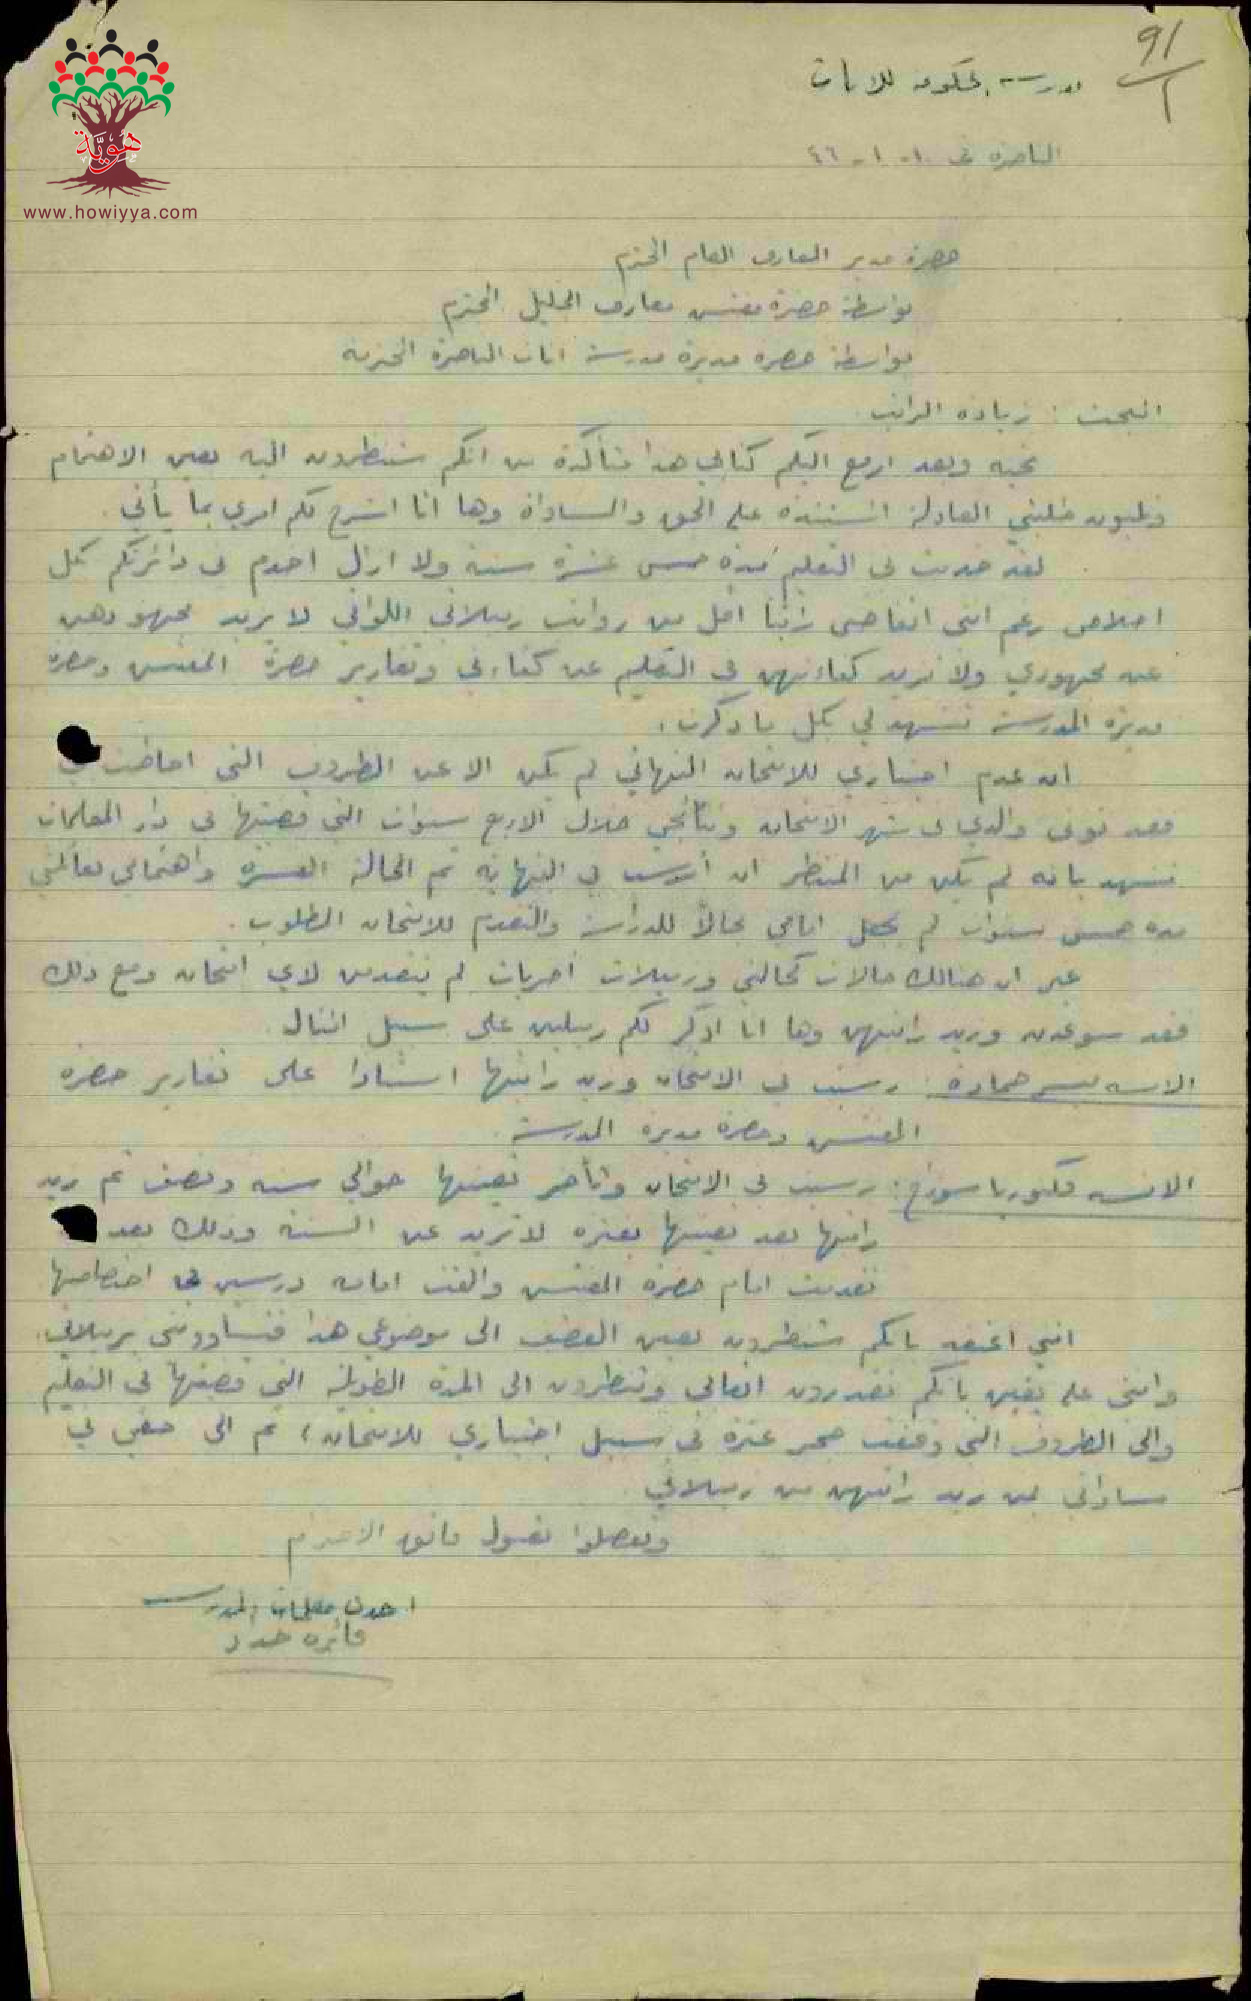 91
1
مدرسة حكومة للاناث
الناصرة في ١٠-١-٤٦
هويّة
www.howiyya.com
حضرة مدير المعارف العام المحترم
بواسطة حضرة مفتش معارف الجليل المحترم
بواسطة حضرة مديرة مدرسة اناث الناصرة المحترمة
البحث : زيادة الراتب
تحية وبعد ارفع اليكم كتابي هذا متأكدة من انكم ستنظرون اليه بعين الاهتمام
وتلبون طلبتي العادلة المستندة على الحق والمساواة وها انا اشرح لكم امري بما يأتي .
لقد خدمت في التعليم مدة خمس عشرة سنة ولا ازال اخدم في دائرتكم بكل
اخلاص رغم انني اتقاضى راتبا اقل من رواتب زميلاتي اللواتي لا يزيد مجهودهن
عن مجهودي ولا تزيد كفاءتهن في التعليم عن كفاءتي وتقارير حضرة المفتش وحضرة
مديرة المدرسة تشهد لي بكل ما ذكرت .
ان عدم اجتيازي للامتحان النهائي لم يكن الا عن الظروف التي احاطت بي
فقد توفى والدي في شهر الامتحان ونتائجي خلال الاربع سنوات التي قضيتها في دار المعلمات
تشهد بانه لم يكن من المنتظر ان أرسب في النهاية ثم الحالة العسرة واهتمامي بعائلتي
مدة خمس سنوات لم يجعل امامي مجالاً للدراسة والتقدم للامتحان المطلوب .
غير ان هنالك حالات كحالتي وزميلات أخريات لم يتقدمن لاي امتحان ومع ذلك
فقد سوعدن وزيد راتبهن وها انا اذكر لكم زميلتين على سبيل المثال .
الانسة ميسر حمادة : رسبت في الامتحان وزيد راتبها استنادا على تقارير حضرة
المفتش وحضرة مديرة المدرسة .
الانسه فكتوريا سورخ : رسبت في الامتحان وتأخر تعيينها حوالي سنه ونصف ثم زيد
راتبها بعد تعيينها بفترة لا تزيد عن السنة وذلك بعد
تقدمت امام حضرة المفتش والقت امامه درسين في اختصاصها
انني اعتقد بانكم ستنظرون بعين العطف الى موضوعي هذا فتساوونني بزميلاتي .
وانني على يقين بانكم تقدرون اتعابي وتنظرون الى المدة الطويلة التي قضيتها في التعليم
والى الظروف التي وقفت حجر عثرة في سبيل اجتيازي للامتحان ، ثم الى حقي في
مساواتي بمن زيد راتبهن من زميلاتي .
وتفضلوا بقبول فائق الاحترام
احدى معلمات المدرسة
فائزه حداد